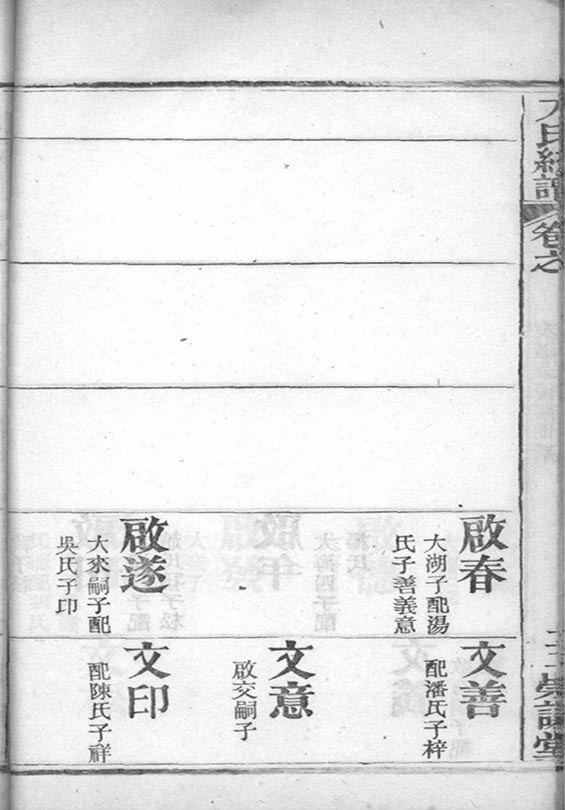 氏經譜
卷之
啟春
大湖子配湯
氏子善義意
啟遂
大來嗣子配
吳氏子印
文善
配潘氏子梓
文意
啟交嗣子
文印
配陳氏子祥